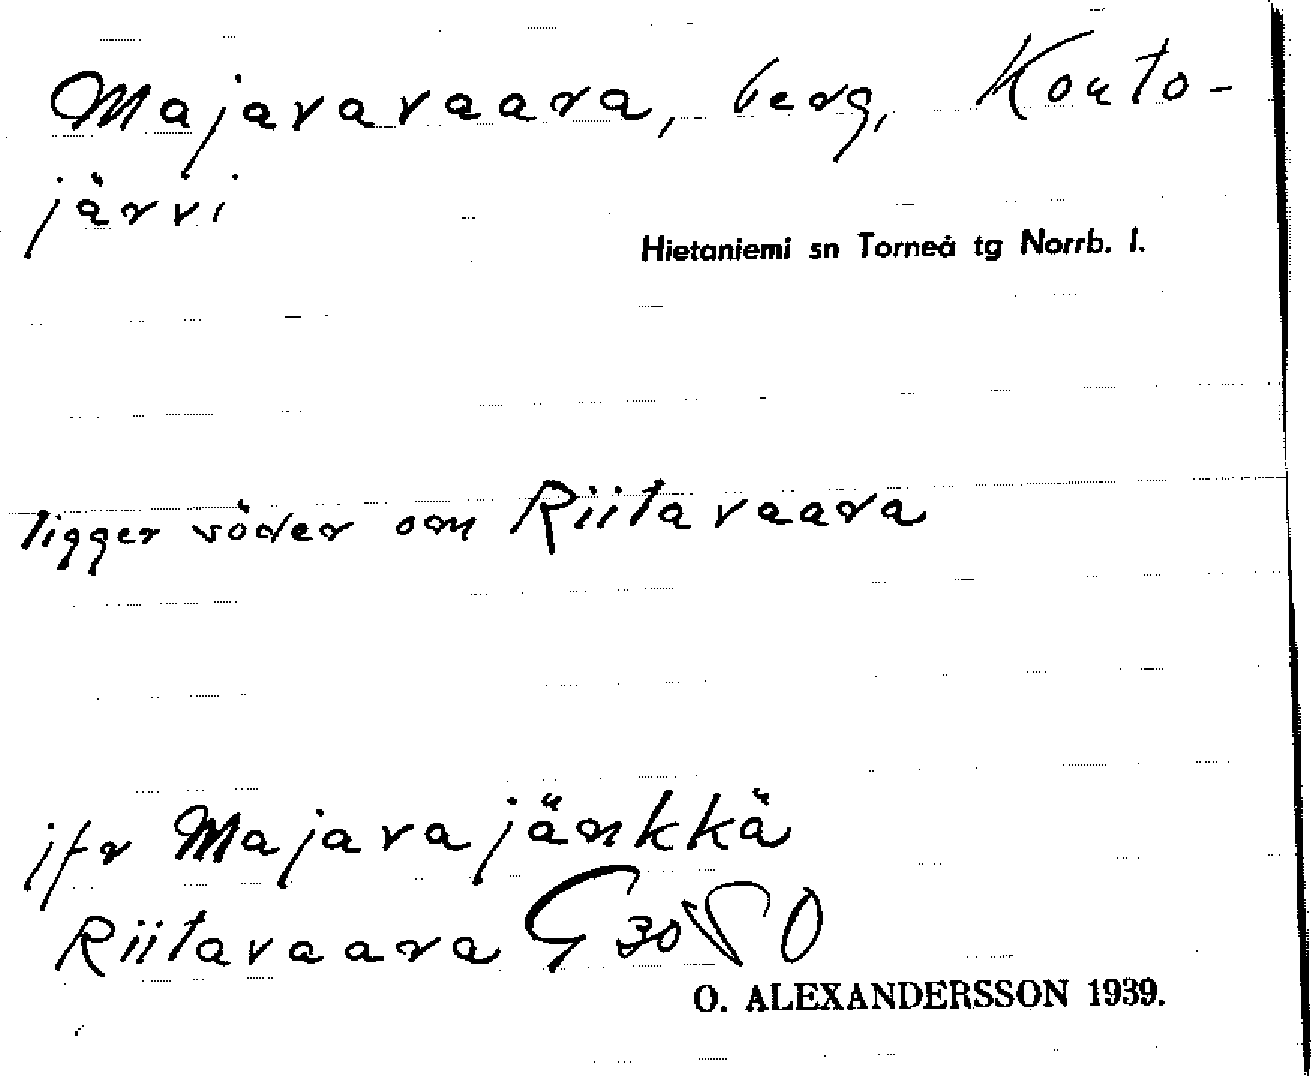 Majavavaara, berg, Kouto-
järvi
Hietaniemi sn Torneå tg Norrb. l.
ligger söder om Riitavaara
jfr Majavajänkkä
Riitavaara G 30 S O
O. ALEXANDERSSON 1939.